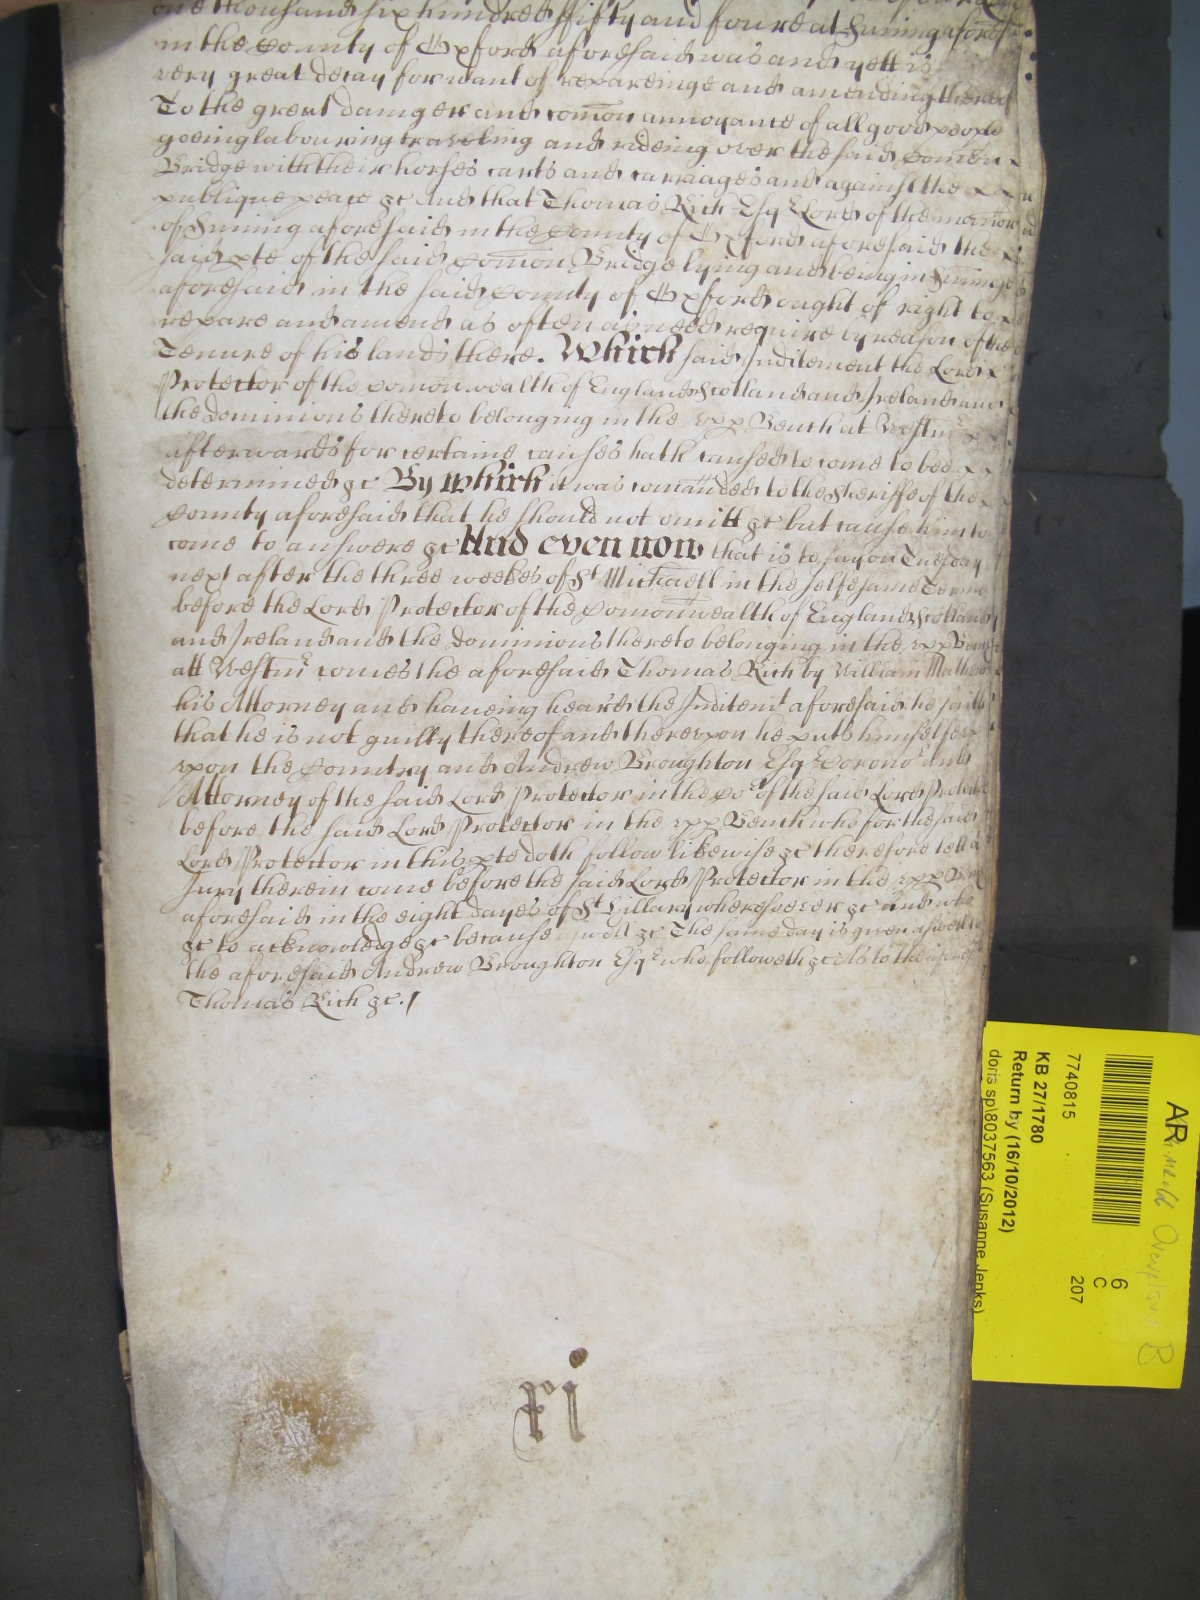 one thousand six hundred fifty and foure at Suning aforesd
in the County of Oxford aforesaid was and yett is
very great decay for want of repareinge and amending thereof
To the great danger and com̄on annoyance of all good people
goeing labouring traveling and rideing over the said Com̄on
Bridge with their horses carts and carriages and against the
publique peace &c And that Thomas Rich Esqr Lord of the mannor
of Suning aforesaid in the County of Oxford aforesaid the
said pte of the said Com̄on Bridge lying and being in Suninge
aforesaid in the said County of Oxford ought of right to
repare and amend as often as need require by reason of the
Tenure of his lands there. Which said Inditement the Lord
Protector of the Com̄onwealth of England Scotland and Ireland and
the dominions thereto belonging in the upp Bench at Westmr
afterwards for certaine causes hath caused to come to bee
determined &c By which it was com̄anded to the Sheriffe of the
County aforesaid that he should not omitt &c but cause him to
come to answere &c And even now that is to say on Tuesday
next after the three weekes of St Michaell in the selfe same Terme
before the Lord Protector of the Com̄onwealth of England Scotland
and Ireland and the dominions thereto belonging in the upp Bench
att Westmr comes the aforesaid Thomas Rich by William
his Attorney and haueing heard the Inditemt aforesaid he saith
that he is not guilty thereof and thereupon he puts himselfe
upon the Countrey and Andrew Broughton Esqr Corono and
Attorney of the said Lord Protector in the Cort of the said Lord Protector
before the said Lord Protector in the upp Bench who for the said
Lord Protector in this pte doth follow likewise &c therefore lett a
Jury therein come before the said Lord Protector in the upp Bench
aforesaid in the eight dayes of St Hillary wheresoever &c and who
&c to acknowledge &c because aswell &c The same day is given aswell to
the aforesaid Andrew Broughton Esqr who followeth &c As to the aforesd
Thomas Rich &c./
xi
AR
7740815
KB 27/1780
Return by (16/10/2012)
doris sp\8037563 (Susanne Jenks)
6
C
207
B